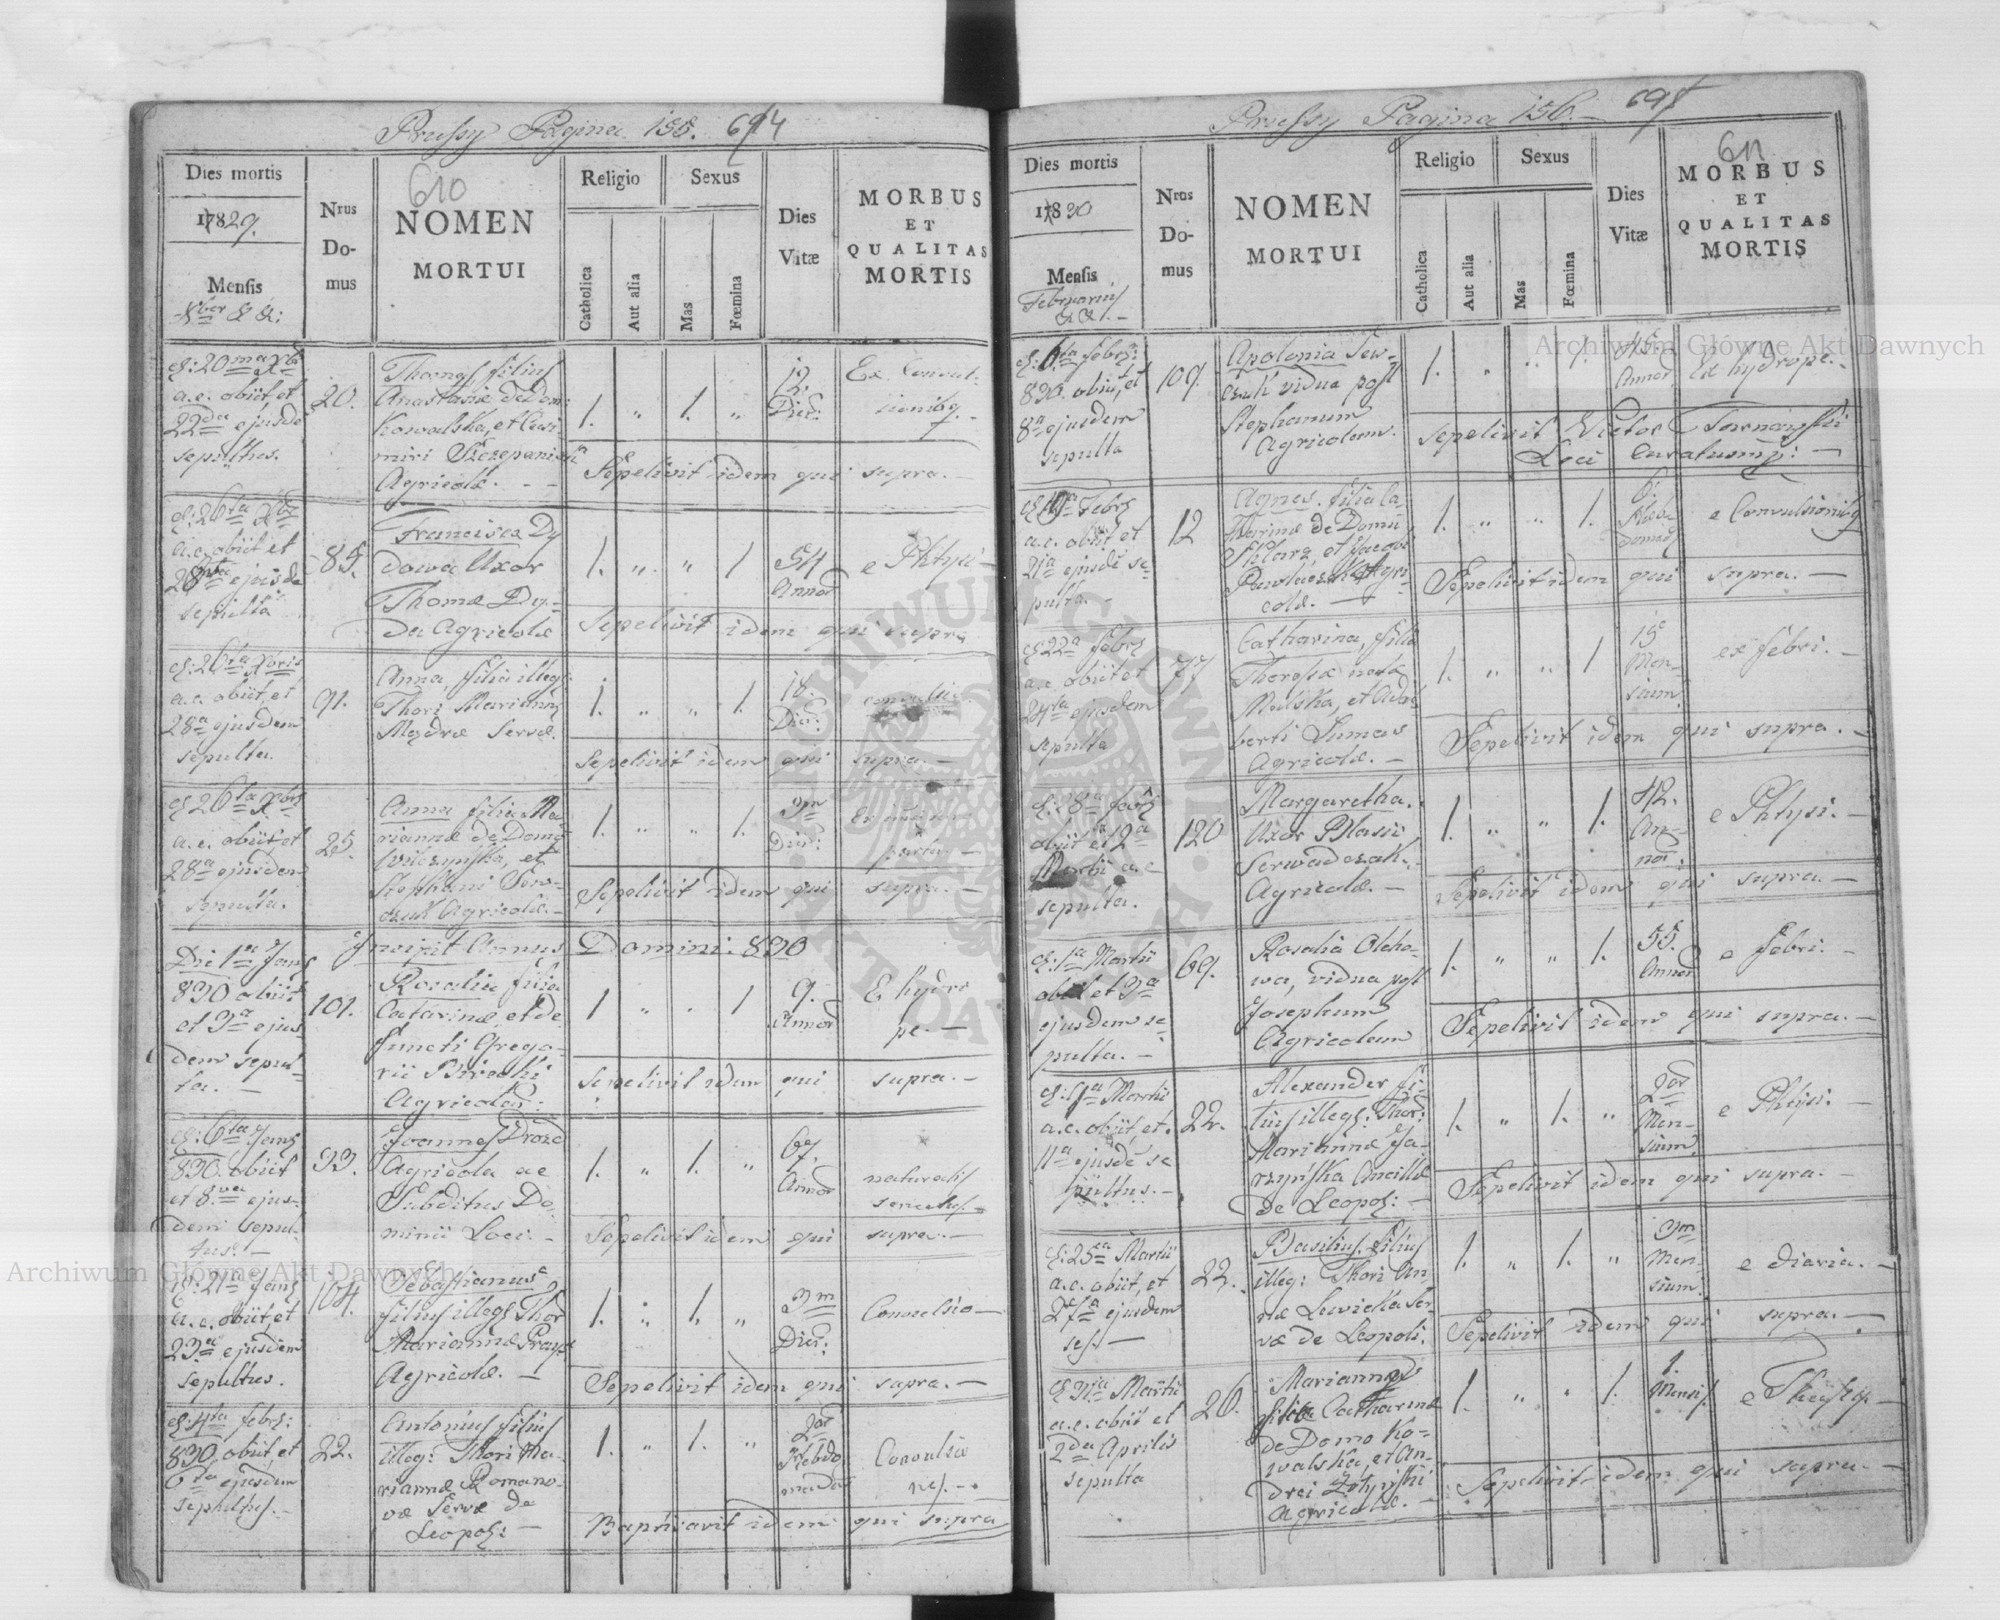 Prussy Pagina 155. 694
610
Dies mortis
17829.
Mensis
Xber & &:
Nrus
Do-
mus
NOMEN
MORTUI
Religio
Sexus
Catholica
Aut alia
Mas
Fœmina
Dies
Vitæ
MORBUS
ET
QUALITAS
MORTIS
d: 20ma Xb
a.c. obiit et
22da ejusde
sepultus.
20.
Thomas filius
Anastasiæ de Dom:
Kowalska, et Casi-
miri Szczepaniak
Agricolæ. - -
1. „ 1. „
12.
Dier:
Ex Convul-
sionibg
Sepelivit idem qui supra. -
d: 26ta Xbr
a.c. obiit et
28va ejusde
sepulta
85.
Francisca Dy
dowa Uxor
Thomæ Dy-
da Agricolæ
1. „ „ 1
54
Annor
e Phtysi -
Sepelivit idem qui supra
d: 26ta Xbris
a.c. obiit, et
28a ejusdem
sepulta.
91.
Anna, filia illeg:
Thori Mariannæ
Mądra Servæ.
1. „ „ 1.
18.
Dier:
convulsio
Sepelivit idem qui supra. -
d 26ta Xbris
a.c. obiit et
28a ejusdem
sepulta.
25.
Anna filia Ma-
riannæ de Domo
Wilczynska, et
Stephani Sew-
czuk Agricolæ. -
1. „ „ 1.
3m
Dier:
Sepelivit idem qui supra. -
Incipit Annus Domini 830
Die 1a Janr
830 obiit
et 3a ejus
dem sepul-
ta. -
101.
Rosalia filia
Catarinæ, et de
functi Grego-
rii Birecki
Agricolæ:
1 „ „ 1
9.
Annor
E hydro
pe. -
Sepelivit idem qui supra. -
d: 6ta Janr
830. obiit
et 8.va ejus-
dem sepul-
tus. -
33.
Joannes Drozd
Agricola ac
Subditus Do-
minii Loci. -
1. „ 1. „
67.
Annor
naturalis
Sepelivit idem qui supra. -
d: 21a Janr
a.c. obiit, et
23a ejusdem
sepultus.
104.
Sebastianus
filius illegs Thor
Mariannæ
Agricolæ. -
1. „ 1. „
3m
Dier:
Convulsio -
Sepelivit idem qui supra. -
d: 4ta febr:
830, obiit, et
6ta ejusdem
sepultus. -
22.
Antonius filius
illeg: Thori Ma-
riannæ Romano-
væ Servæ de
Leopol: -
1. „ 1. „
2or
Hebdo
madar
Convulsio
nes. -
Baptisavit idem qui supra
Prussy Pagina 156. - 695
611
Dies mortis
17830
Mensis
Februarius
& &. -
Nrus
Do-
mus
NOMEN
MORTUI
Religio
Sexus
Catholica
Aut alia
Mas
Fœmina
Dies
Vitæ
MORBUS
ET
QUALITAS
MORTIS
d: 6ta febr:
830. obiit, et
8a ejusdem
sepulta
109
Apolonia Sew-
czuk vidua post
Stephanum
Agricolam.
1. „ „ 1.
45
Annor
Ex hydrope. -
Sepelivit Victor Tarnawski
Loci Curatusmp: -
d 19a Febr
a.c. obiit et
21a ejusde se-
pulta. -
12
Agnes. filia Ca-
tharinæ de Domo
Szklarz et Jacobi
Pawlaczek Agri-
colæ. -
1. „ „ 1.
6
Hebdo-
madar
e Convulsionibg
Sepelivit idem qui supra. -
d 22a febr
a.c. obiit et
24ta ejusdem
sepulta
77
Catharina, filia
Theresiæ nata
Malska, et Adal
berti Dumas
Agricolæ. -
1. „ „ 1
15
Men-
sium
ex febri. -
Sepelivit idem qui supra. -
d: 28a febr
obiit et 2a
Martii a.c
sepulta.
120
Margaretha.
Uxor Blasii
Serwadczak.
Agricolæ. -
1. „ „ 1.
42.
An-
nor.
e Phtysi. -
Sepelivit idem qui supra. -
d: 1a Martii
obiit et 3a
ejusdem se-
pulta. -
69.
Rosalia Olcho-
wa, vidua post
Josephum
Agricolam
1. „ „ 1.
55.
Annor
e febri -
Sepelivit idem qui supra. -
d: 9a Martii
a.c. obiit, et
11a ejusde se
pultus. -
22.
Alexander fi-
lius illegs: Thor:
Mariannæ Ja-
rzynska Ancillæ
de Leopol: -
1. „ 1. „
2or
Men-
sium
e Phtysi. -
Sepelivit idem qui supra. -
d: 25a Martii
a.c. obiit, et
27a ejusdem
sep. -
22.
Basilius filius
illeg: Thori An-
næ Lewicka Ser-
væ de Leopoli.
1. „ 1. „
3m
Men-
sium.
e diaria. -
Sepelivit idem qui supra. -
d 31a Martii
a.c. obiit et
2da Aprilis
sepulta
26.
Marianna
filia Catharinæ
de Domo Ko-
walska, et An-
drei
Agricolæ. -
1. „ „ 1.
1.
Mensis.
Sepelivit idem qui supra. -
Archiwum Główne Akt Dawnych
Archiwum Główne Akt Dawnych
ARCHIWUM GŁÓWNE AKT DAWNYCH